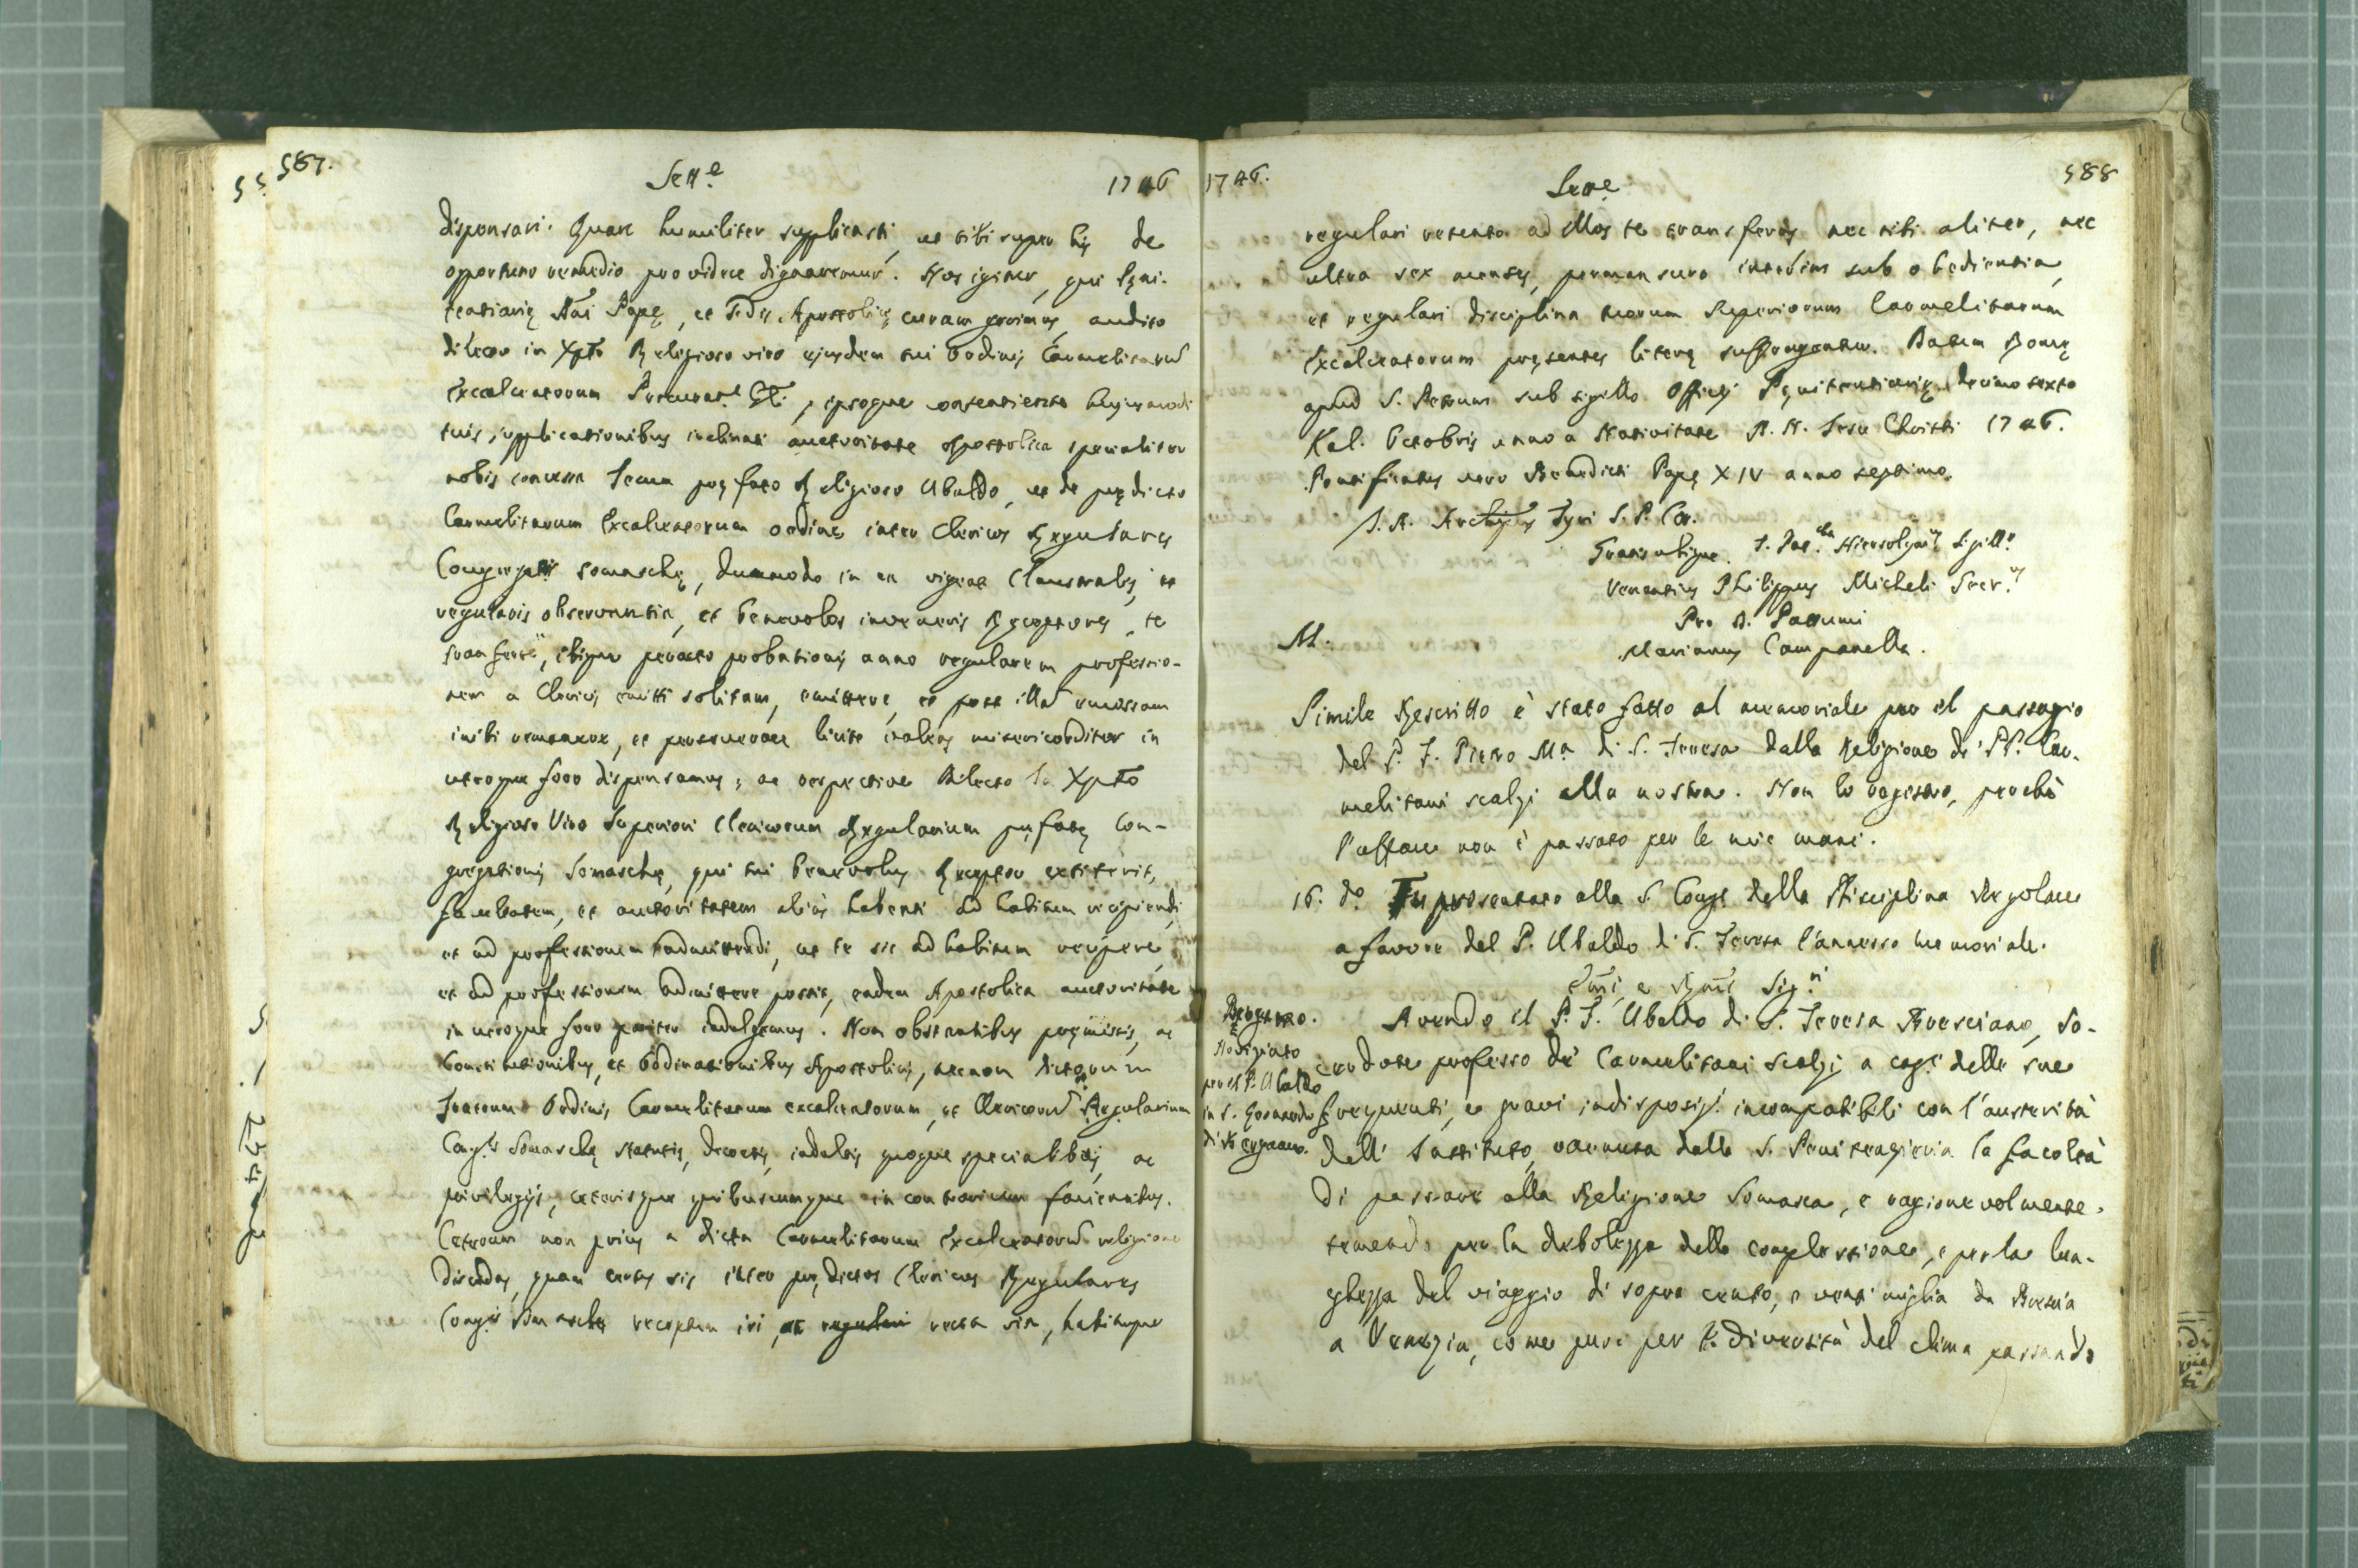 587.
Sett.e
1746
dispensari. Quare humiliter supplicasti, ut tibi super his de
opportuno remedio providere dignaremur. Nos igitur, qui Pęni-
tentiarię Dñi Papę, et Sedis Apostolicę curam gerimus, audito
dilecto in Xpto Religioso viro ejusdem tui Ordinis Carmelitarũ
Excalceatorum Procurat.e Gñli, ipsoque consentiente hujusmodi
tuis supplicationibus inclinati auctoritate Apostolica specialiter
nobis concessa Tecum pręfato Religioso Ubaldo, ut de prędicto
Carmelitarum Excalceatorum ordine inter Clericos Regulares
Congregat.is Somaschę, dummodo in ea vigeat Claustralis, et
regularis observantia, et benevolos inveneris Receptores, te
transferre, ibique peracto probationis anno regularem professio-
nem a Clericis emitti solitam, emittere, et post illã emissam
inibi remanere, et perseverare licite valeas misericorditer in
utroque foro dispensamus; ac respective dilecto in Xpto
Religioso Viro Superiori Clericorum Regularium pręfatę Con-
gregationis Somaschę, qui tui benevolus Receptor extiterit,
facultatem, et auctoritatem aliàs habenti ad habitum recipiendi,
et ad professionem admittendi, ut te sic ad habitum recipere,
et ad professionem admittere possit, eadem Apostolica auctoritate
in utroque foro pariter indulgemus. Non obstantibus pręmissis, ac
Constitutionibus, et Ordinationibus Apostolicis, necnon dictorum
Fratrum Ordinis Carmelitarum excalceatorum, et Clericorũ Regularium
Cong.is Somaschę statutis, decretis, indultis quoque specialibus, ac
privilegijs, ceterisque quibuscumque in contrarium facientibus.
Ceterum non prius a dicta Carmelitarum Excalceatorũ religione
discedas, quam certus sis inter prędictos Clericos Regulares
Cong.is Somaschę receptum iri, et regulari recta via, habituque
1746.
Sett.e
588
regulari retento ad illos te transferas nec tibi aliter, nec
ultra sex menses, permansuro interim sub obedientia,
et regulari disciplina tuorum Superiorum Carmelitarum
Excalceatorum pręsentes literę suffragentur. Datum Romę
apud S. Petrum sub sigillo Officij Pęnitentiarię decimo sexto
Kal. Octobris anno a Nativitate D. N. Jesu Christi 1746.
Pontificatus vero Benedicti Papę XIV anno septimo.
J. A. Archiepus Tyri S. P. Cor.
Gratis ubique. J. Pat.cha Hierosolym.us Sigill.r
Venantius Philippus Micheli Secr.us
Pro D. Passumi
Marianus Campanella.
M.
Simile Rescritto è stato fatto al memoriale per il passagio
del P. F. Pietro M.a di S. Teresa dalla Religione de' PP. Car-
melitani scalzi alla nostra. Non lo registro, perchè
l'affare non è passato per le mie mani.
16. d.o Fu presentato alla S. Cong.e della Disciplina Regolare
a favore del P. Ubaldo di S. Teresa l'annesso memoriale.
Em̃i, e Rm̃i Sig.ri
Bergamo.
Noviziato
per il P. Ubaldo
in S. Leonardo
di Bergamo.
Avendo il P. F. Ubaldo di S. Teresa Bresciano, Sa-
cerdote professo de' Carmelitani Scalzi a cag.e delle sue
frequenti, e gravi indisposiz.i incompatibili con l'austerità
dell' Instituto, ottenuta dalla S. Penitenzieria la facoltà
di passare alla Religione Somasca, e ragionevolmente
temendo per la debolezza della complessione, e per la lun-
ghezza del viaggio di sopra cento, e venti miglia da Brescia
a Venezia, come pure per la diversità del clima passando